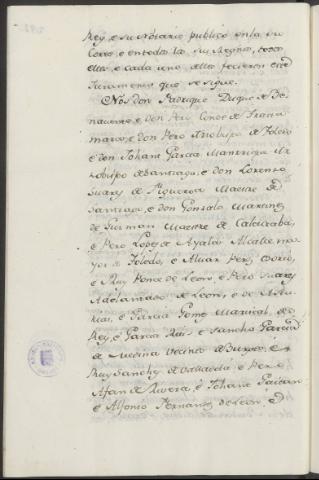 Rey, e su Notario publico en la su
Corte, e en todos los sus Regnos, todos
ellos, e cada uno dellos fecieron este
Juramento que se sigue.
Nos don Fadrique Duque de Be-
navente, e don Pero Conde de Trasta-
mara, e don Pero Arzobispo de Toledo
e don Johant Garcia Manrrique Ar-
zobispo de Santiago, e don Lorenzo
Suares de Figueroa Maestre de
Santiago, e don Gonzalo Nunnez
de Gusman Maestre de Calatraba,
e Pero Lopes de Ayala Alcallde ma-
yor de Toledo, e Alvar Peres Osorio,
e Ruy Ponce de Leon, e Pero Suares
Adelantado de Leon, e de Astu-
rias, e Garcia Gonz Mariscal de
Rey, e Garcia Ruis e Sancho Garcia
de Medina vecinos de Burgos, e
Ruy Sanchez de Valladolid e Per
Afan de Rivera, e Johant Gaitan
e Alfonso Fernandes de Leon, e